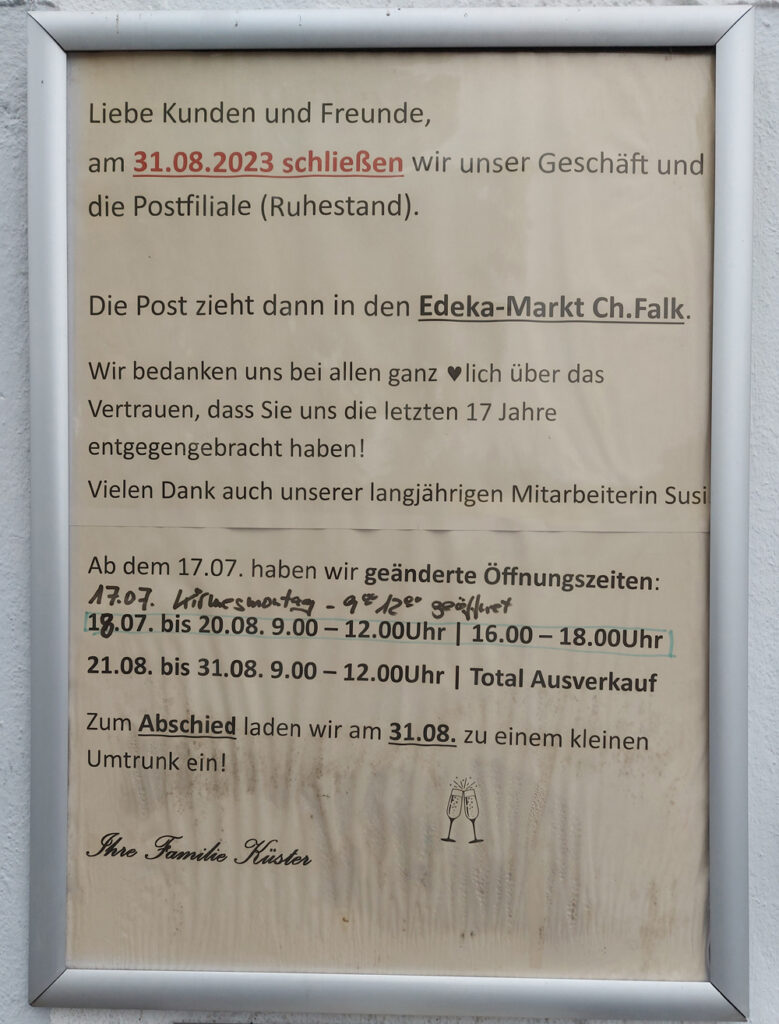 Liebe Kunden und Freunde,
am 31.08.2023 schließen wir unser Geschäft und
die Postfiliale (Ruhestand).
Die Post zieht dann in den Edeka-Markt Ch.Falk.
Wir bedanken uns bei allen ganz ♥lich über das
Vertrauen, dass Sie uns die letzten 17 Jahre
entgegengebracht haben!
Vielen Dank auch unserer langjährigen Mitarbeiterin Susi
Ab dem 17.07. haben wir geänderte Öffnungszeiten:
17.07. Kirmesmontag - 9⁰⁰ 12⁰⁰ geöffnet
18.07. bis 20.08. 9.00 – 12.00Uhr | 16.00 – 18.00Uhr
21.08. bis 31.08. 9.00 – 12.00Uhr | Total Ausverkauf
Zum Abschied laden wir am 31.08. zu einem kleinen
Umtrunk ein!
Ihre Familie Küster